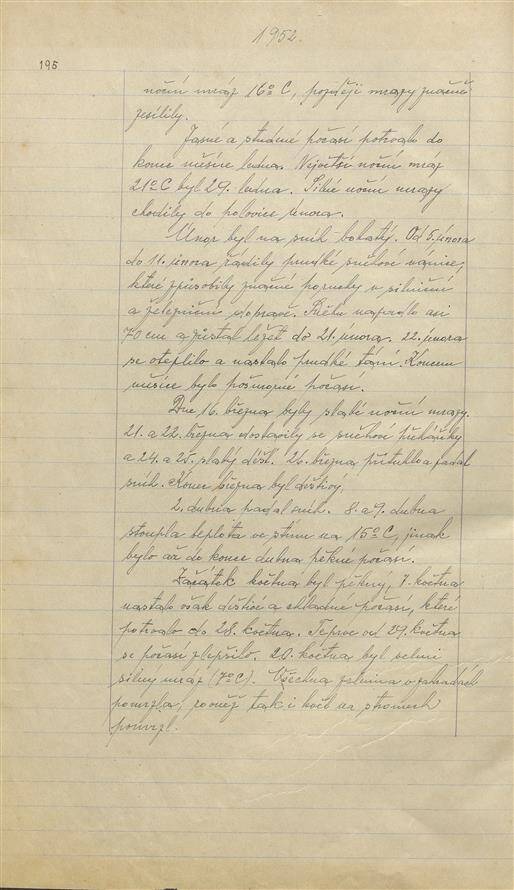 1952.
195
noční mráz 16° C, později mrazy značně
zesílily.
Jasné a studené počasí potrvalo do
konce měsíce ledna. Největší noční mráz
21°C byl 29. ledna. Silné noční mrazy
chodily do polovice února.
Únor byl na sníh bohatý. Od 5. února
do 11. února řádily prudké sněhové vánice,
které způsobily značné poruchy v silniční
a železniční dopravě. Sněhu napadlo asi
70 cm a zůstal ležet do 21. února. 22. února
se oteplilo a nastalo prudké tání. Koncem
měsíce bylo pošmorné počasí.
Dne 16. března byly slabé noční mrazy.
21. a 22. března dostavily se sněhové přeháňky
a 24. a 25. slabý déšť. 26. března přituhlo a padal
sníh. Konec března byl deštivý.
2. dubna padal sníh. 8. a 9. dubna
stoupla teplota ve stínu na 15° C, jinak
bylo až do konce dubna pěkné počasí.
Začátek května byl pěkný, 7. května
nastalo však deštivé a chladné počasí, které
potrvalo do 28. května. Teprve od 29. května
se počasí zlepšilo. 20. května byl velmi
silný mráz (7°C). Všechna zelenina v zahradách
pomrzla, rovněž tak i květ na stromech
pomrzl.